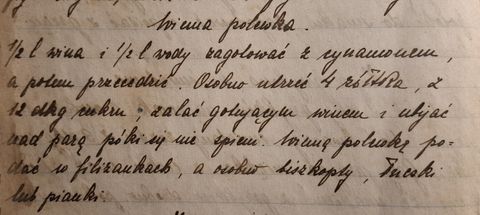 Winna polewka.
1/2 l wina i 1/2 l wody zagotować z cynamonem,
a potem przecedzić. Osobno utrzeć 4 żółtka, z
12 dkg cukru, zalać gotującym winem i ubijać
nad parą póki się nie spieni. Winną polewkę po-
dać w filiżankach, a osobno biszkopty,
lub pianki.